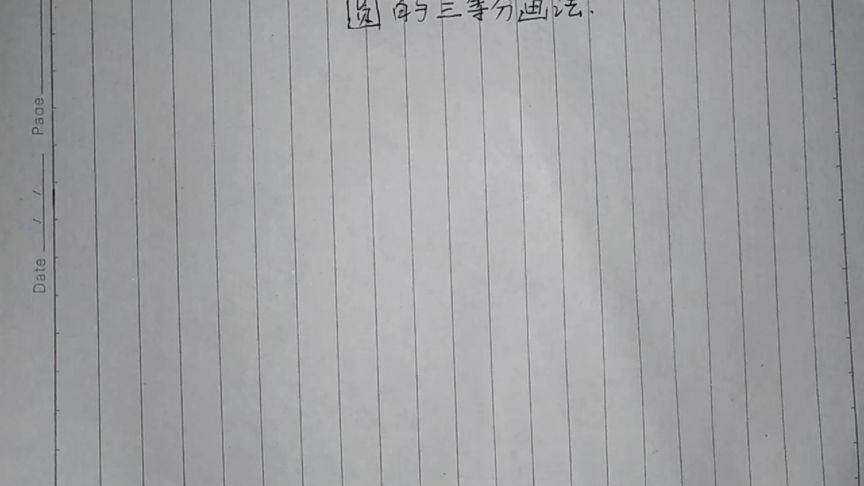 圆的三等分画法.
Date / / Page